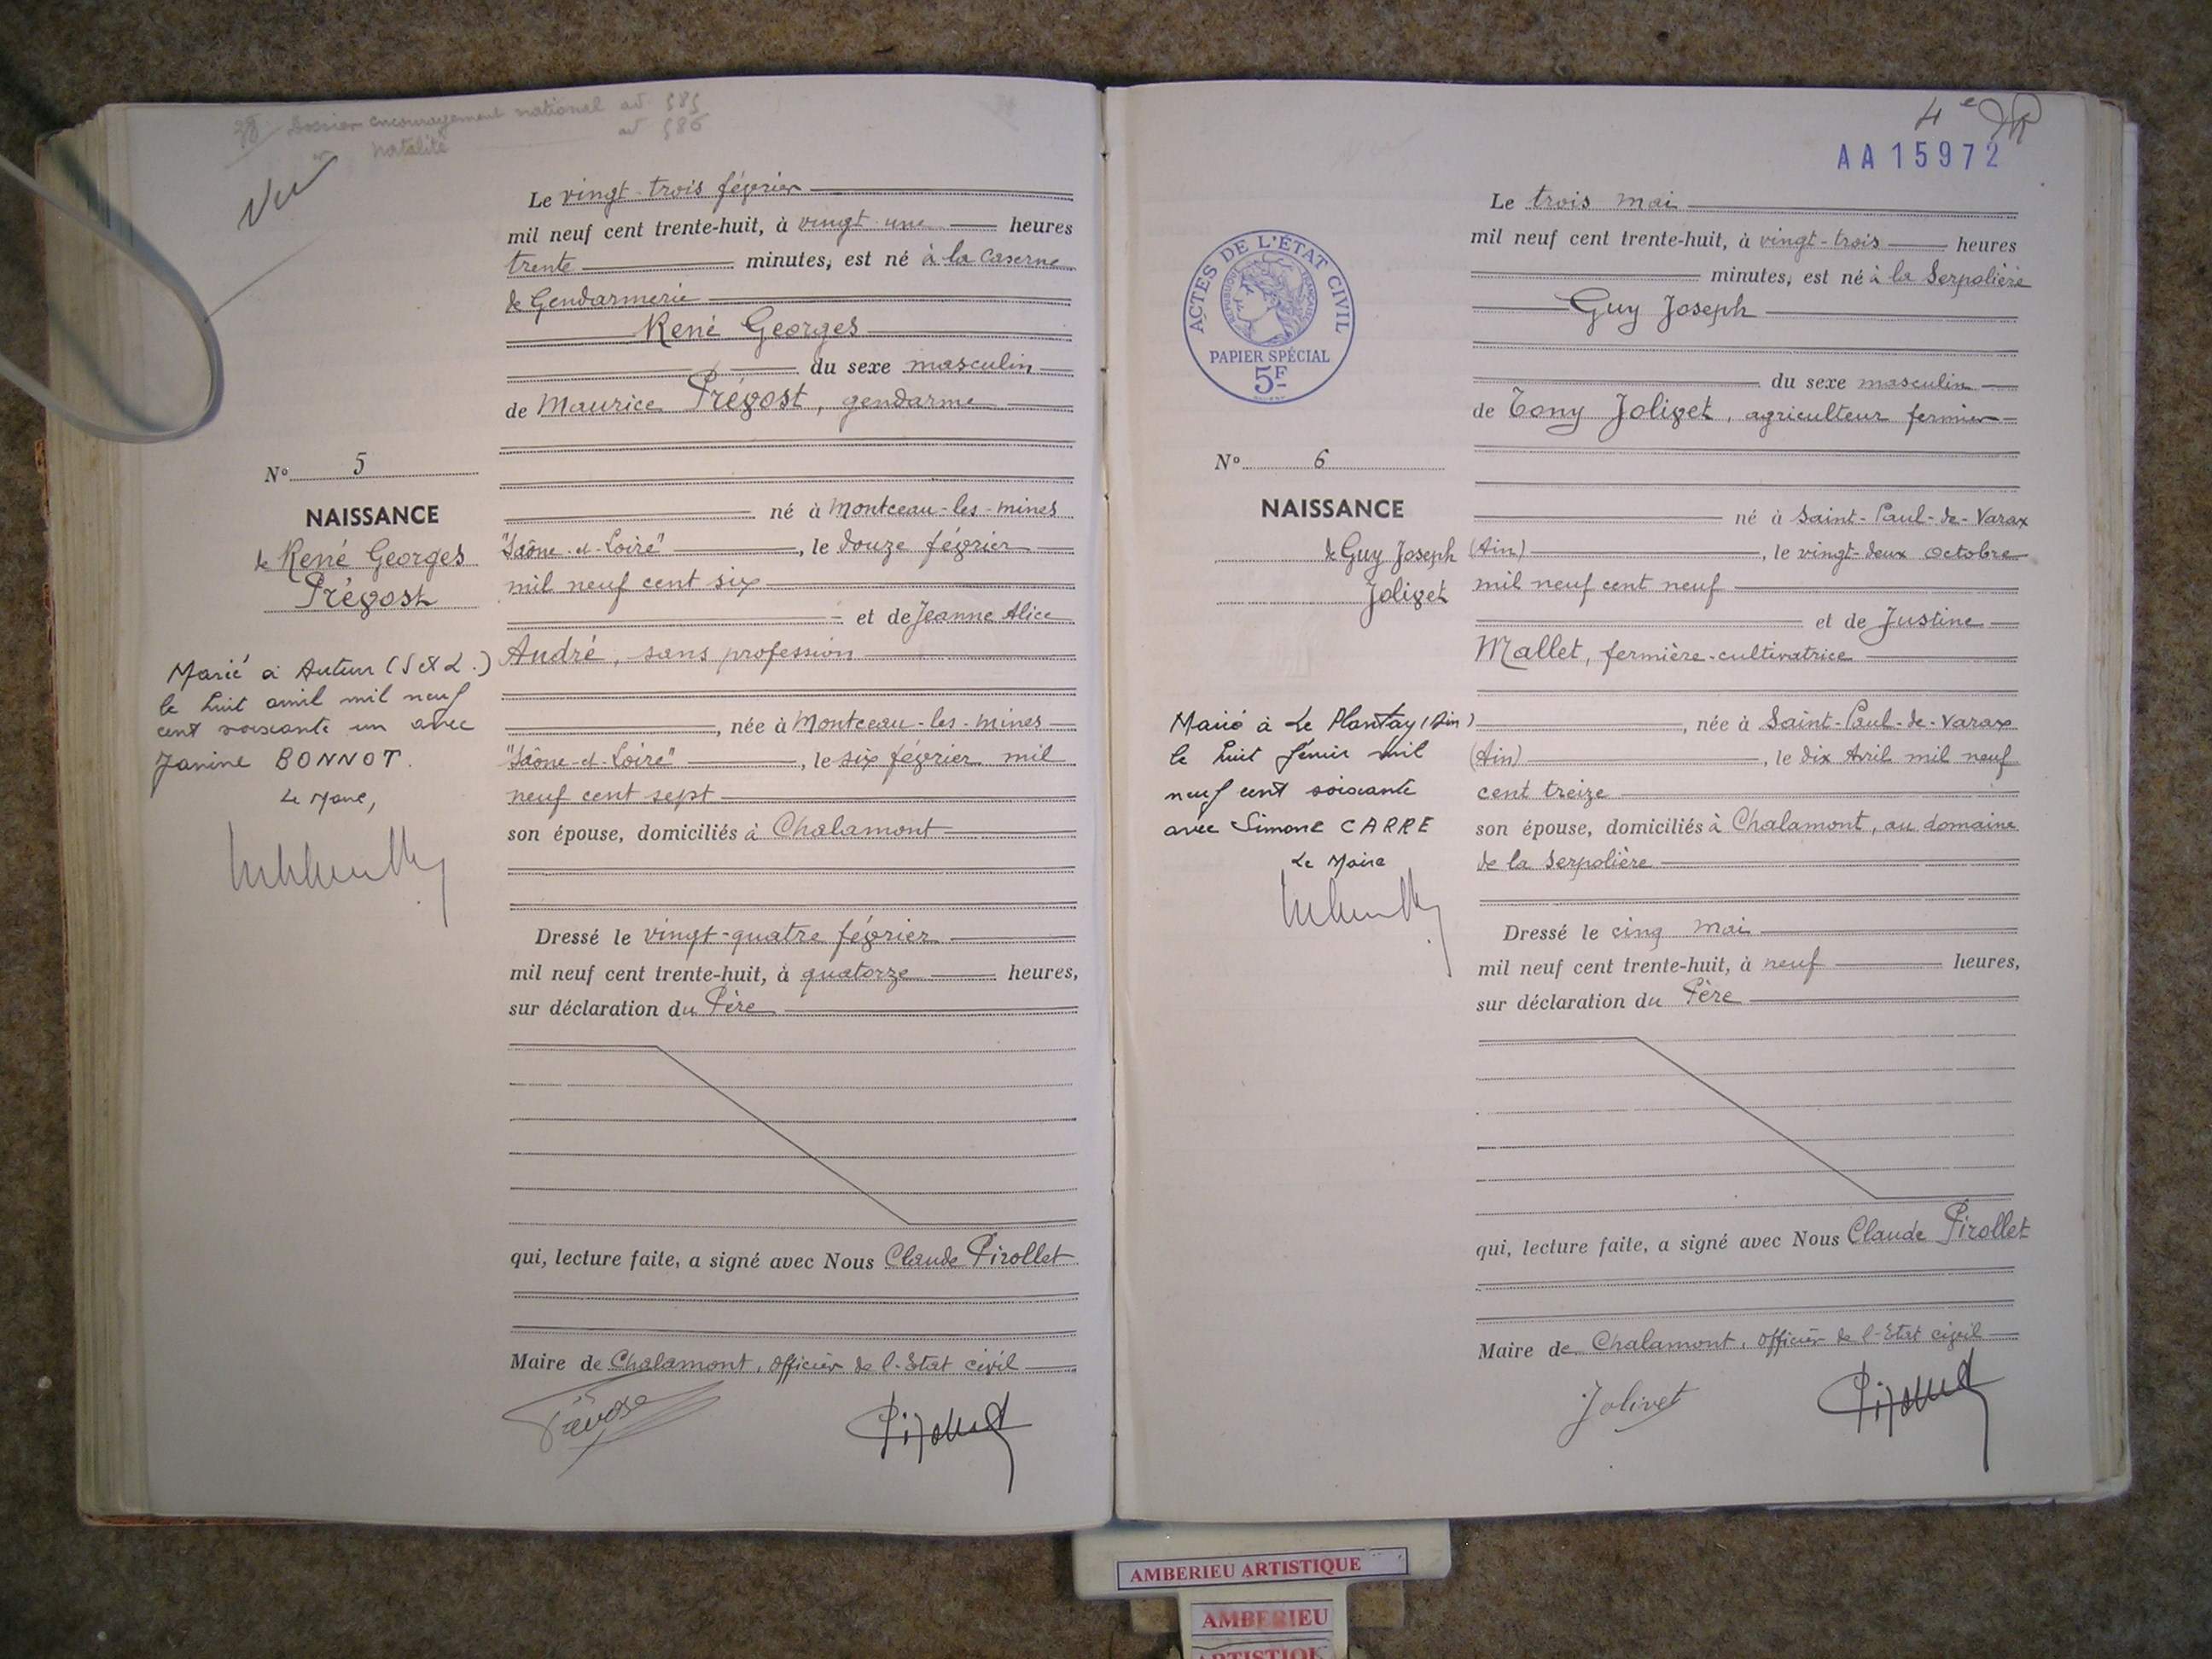 Dossier encouragement national art 585
natalité art 586
Vu
Le vingt-trois février
mil neuf cent trente-huit, à vingt une heures
trente minutes, est né à la Caserne
de Gendarmerie
René Georges
du sexe masculin
de Maurice Prévost, gendarme
né à Montceau-les-mines
"Saône-et-Loire", le douze février
mil neuf cent six
et de Jeanne Alice
André, sans profession
, née à Montceau-les-mines
"Saône-et-Loire", le six février mil
neuf cent sept
son épouse, domiciliés à Chalamont
Dressé le vingt-quatre février
mil neuf cent trente-huit, à quatorze heures,
sur déclaration du Père
qui, lecture faite, a signé avec Nous Claude Pirollet
Maire de Chalamont, officier de l'Etat civil
N° 5
NAISSANCE
de René Georges
Prévost
Marié à Autun (S et L.)
le huit avril mil neuf
cent soixante un avec
Janine BONNOT.
Le Maire,
4e
AA15972
ACTES DE L'ÉTAT CIVIL
RÉPUBLIQUE FRANÇAISE
PAPIER SPÉCIAL
5F
Le trois mai
mil neuf cent trente-huit, à vingt-trois heures
minutes, est né à la Serpolière
Guy Joseph
du sexe masculin
de Tony Jolivet, agriculteur fermier
né à Saint-Paul-de-Varax
(Ain), le vingt-deux octobre
mil neuf cent neuf
et de Justine
Mallet, fermière-cultivatrice
, née à Saint-Paul-de-Varax
(Ain), le dix Avril mil neuf
cent treize
son épouse, domiciliés à Chalamont, au domaine
de la Serpolière
Dressé le cinq mai
mil neuf cent trente-huit, à neuf heures,
sur déclaration du Père
qui, lecture faite, a signé avec Nous Claude Pirollet
Maire de Chalamont, officier de l'Etat civil
Jolivet
N° 6
NAISSANCE
de Guy Joseph
Jolivet
Marié à Le Plantay (Ain)
le huit février mil
neuf cent soixante
avec Simone CARRE
Le Maire
AMBERIEU ARTISTIQUE
AMBERIEU
ARTISTIQUE